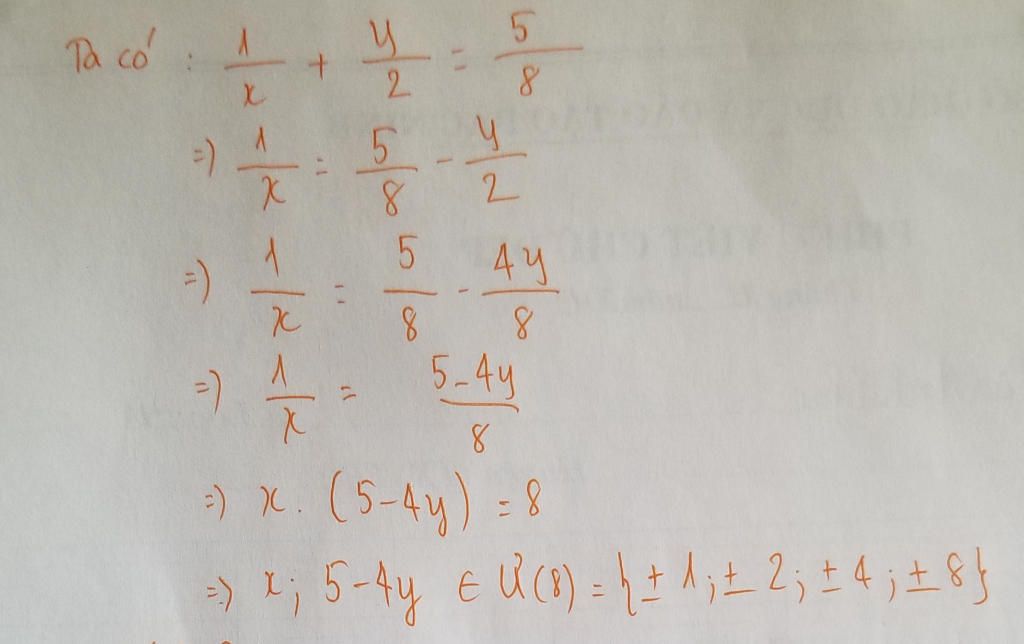 Ta có: 1/x + y/2 = 5/8
=) 1/x = 5/8 - y/2
=) 1/x = 5/8 - 4y/8
=) 1/x = 5-4y/8
=) x. (5-4y) = 8
=) x; 5-4y ∈ Ư(8) = {± 1; ± 2; ± 4; ± 8}